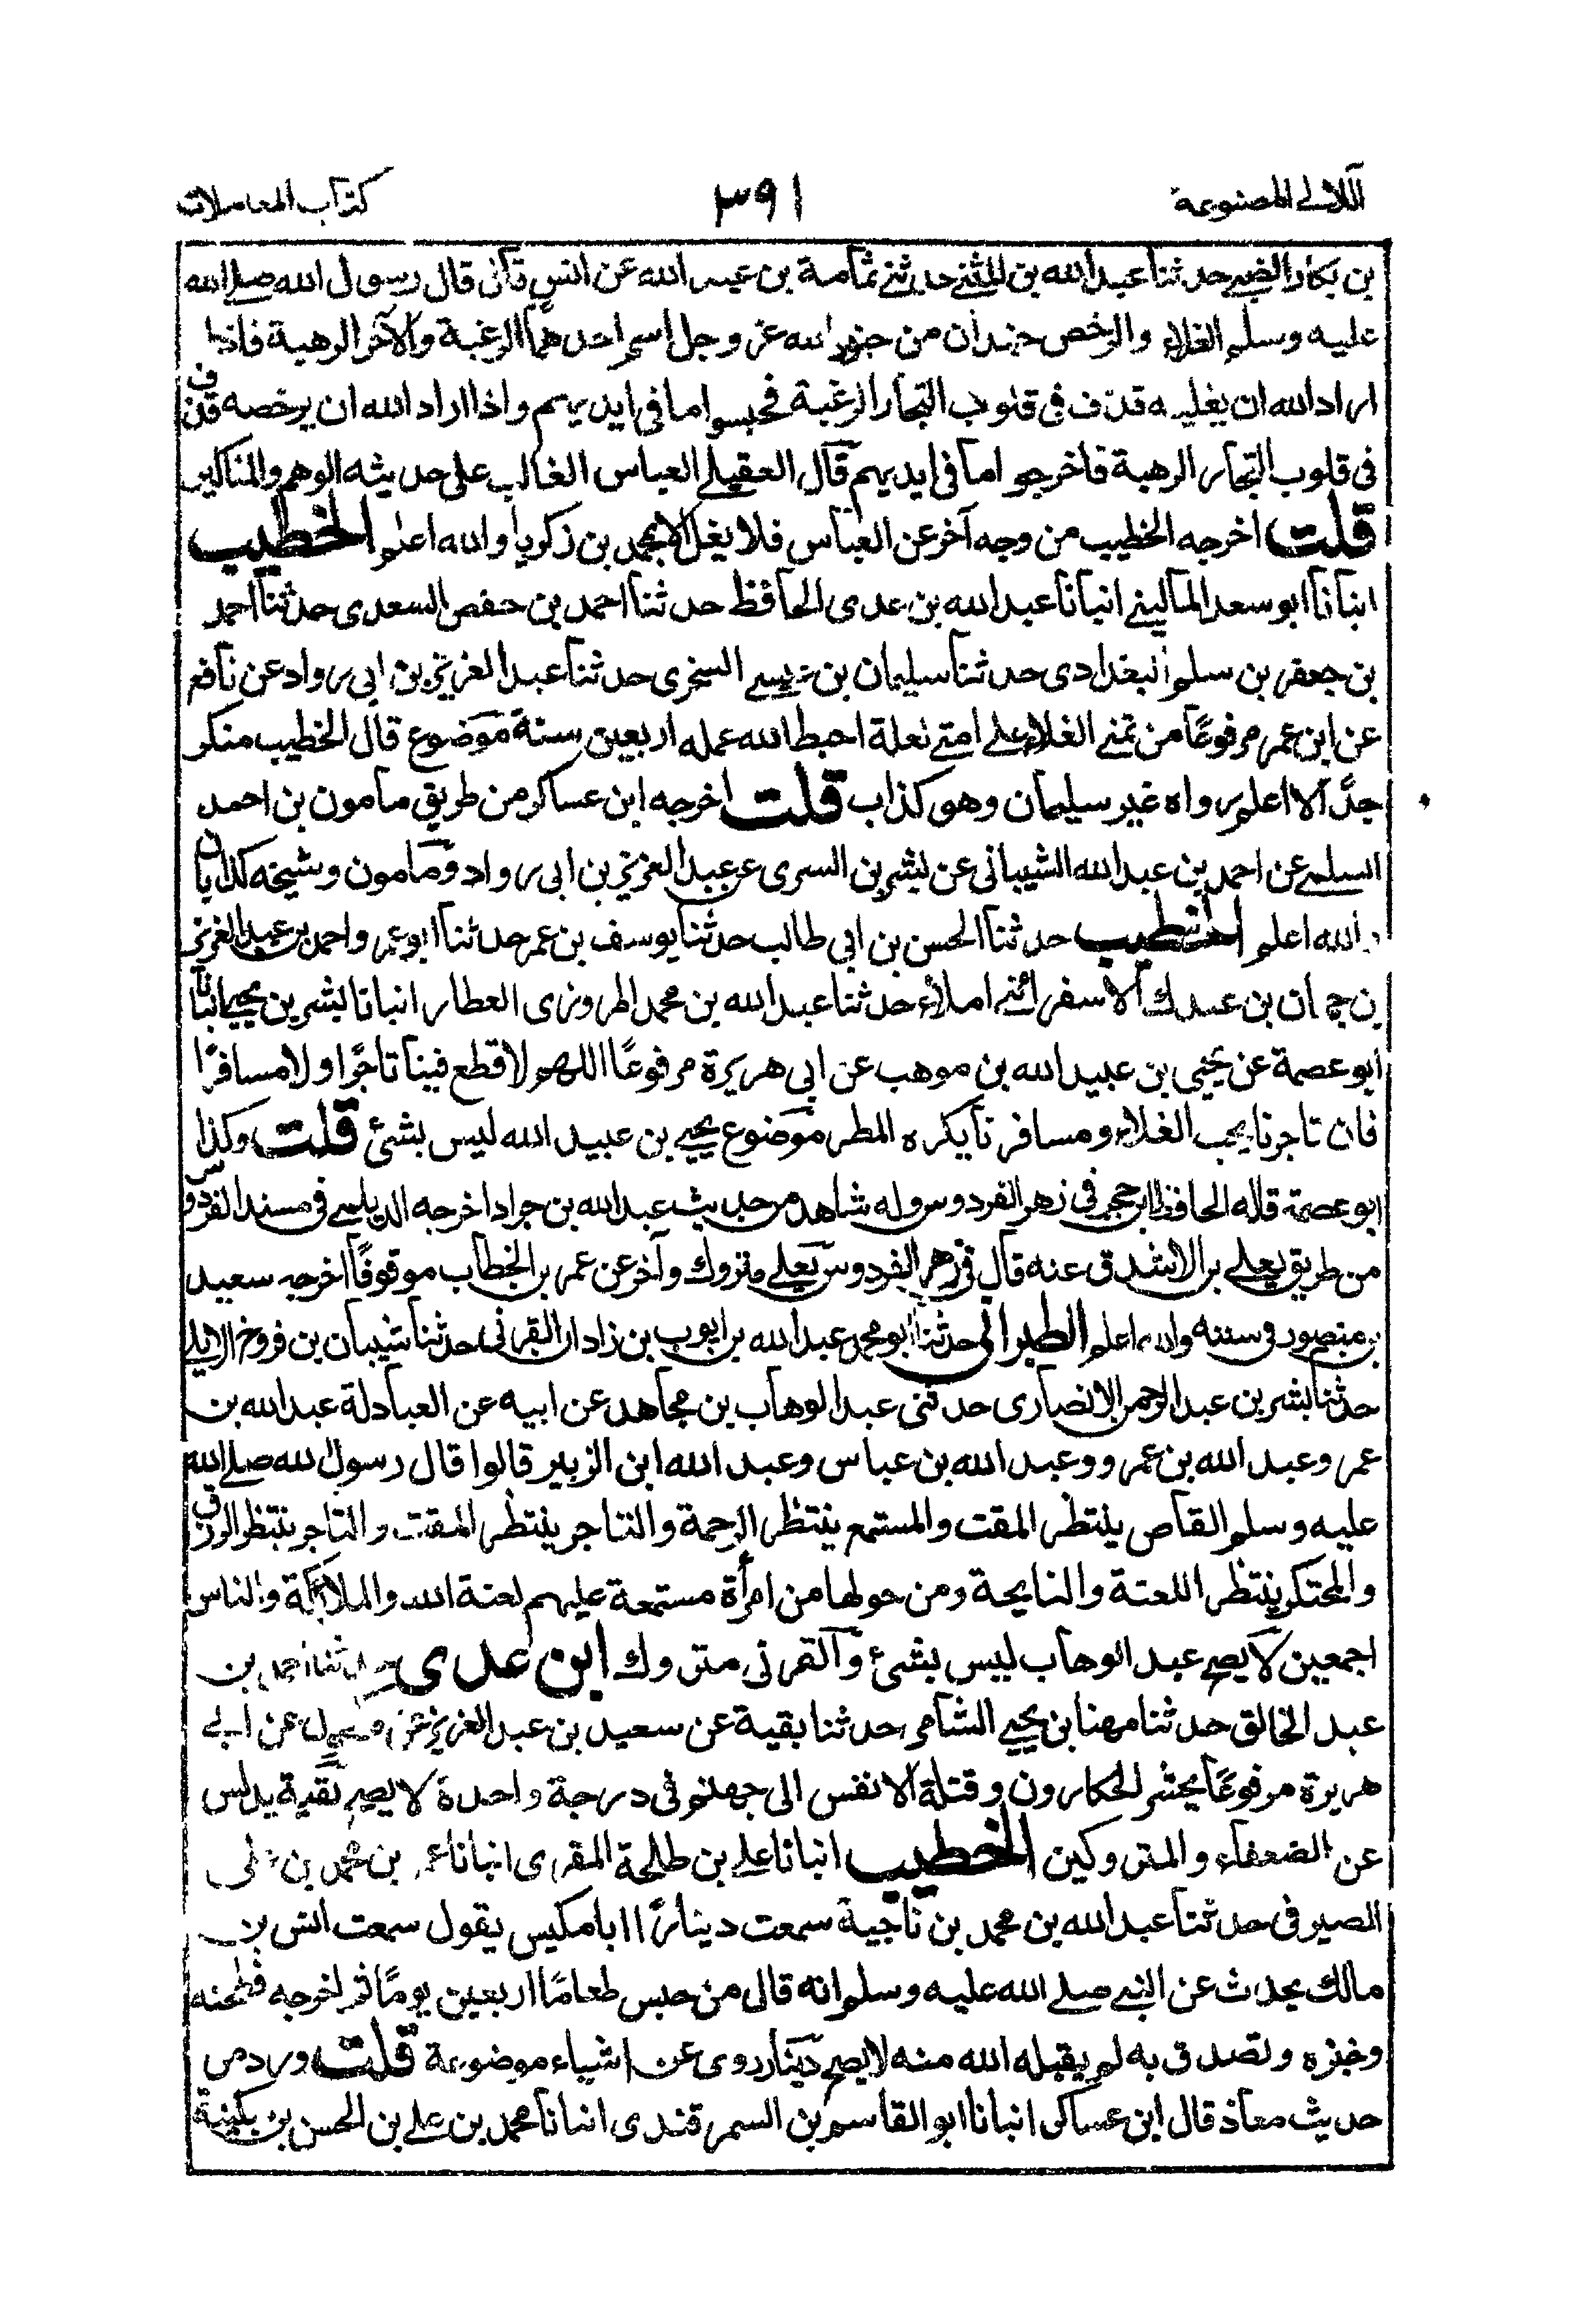 اللآلي المصنوعة
٣٩١
كتاب المعاملات
بن بكار الضبي حدثنا عبدالله بن المثنى حدثني ثمامة بن عبد الله عن انس قال قال رسول الله صلى الله
عليه وسلم الغلاء والرخص جندان من جنود الله عز وجل اسم احدهما الرغبة والآخر الرهبة فاذا
اراد الله ان يغليه قذف فى قلوب التجار الرغبة فحبسوا ما فى ايديهم واذا اراد الله ان يرخصه قذف
فى قلوب التجار الرهبة فاخرجوا ما فى ايديهم قال العقيلى العباس الغالب على حديثه الوهم والمناكير
قلت اخرجه الخطيب من وجه آخر عن العباس فلا يغل الا بمحمد بن زكريا والله اعلم الخطيب
انبانا ابو سعد المالينى انبانا عبد الله بن عدى الحافظ حدثنا احمد بن حفص السعدى حدثنا احمد
بن جعفر بن سلم البغدادى حدثنا سليمان بن عيسى السجزى حدثنا عبد العزيز بن ابى رواد عن نافع
عن ابن عمر مرفوعًا من تمنى الغلاء على امتى ليلة احبط الله عمله اربعين سنة موضوع قال الخطيب منكر
جدًّا لا اعلم رواه غير سليمان وهو كذاب قلت اخرجه ابن عساكر من طريق مامون بن احمد
السلمى عن احمد بن عبد الله الشيبانى عن بشر بن السرى عن عبد العزيز بن ابى رواد ومامون وشيخه كذابان
والله اعلم الخطيب حدثنا الحسن بن ابى طالب حدثنا يوسف بن عمر حدثنا ابو عمر واحمد بن عبد العزيز
بن عبدك الاسفرائنى املاء حدثنا عبد الله بن محمد المروزى العطار انبانا بشر بن يحيى انبانا
ابو عصمة عن يحيى بن عبيد الله بن موهب عن ابى هريرة مرفوعًا اللهم لا تطع فينا تاجرًا ولا مسافرًا
فان تاجرنا يحب الغلاء ومسافرنا يكره المطر موضوع يحيى بن عبيد الله ليس بشئ قلت وكذا
ابو عصمة قاله الحافظ ابن حجر فى زهر الفردوس وله شاهد من حديث عبد الله بن جراد اخرجه الديلمى فى مسند الفردوس
من طريق يعلى بن الاشدق عنه قال فى زهر الفردوس يعلى متروك وآخر عن عمر بن الخطاب موقوفًا اخرجه سعيد
بن منصور فى سننه والله اعلم الطبرانى حدثنا ابو محمد عبد الله بن ايوب بن زاذان القرنى حدثنا شيبان بن فروخ الايلى
حدثنا بشر بن عبد الرحمن الانصارى حدثنى عبد الوهاب بن مجاهد عن ابيه عن العبادلة عبد الله بن
عمر وعبد الله بن عمرو وعبد الله بن عباس وعبد الله ابن الزبير قالوا قال رسول الله صلى الله
عليه وسلم القاص ينتظر المقت والمستمع ينتظر الرحمة والتاجر ينتظر المقت والتاجر ينتظر الرزق
والمحتكر ينتظر اللعنة والنايحة ومن حولها من امرأة مستمعة عليهم لعنة الله والملائكة والناس
اجمعين لا يصح عبد الوهاب ليس بشئ والقرنى متروك ابن عدى حدثنا احمد بن
عبد الخالق حدثنا مهنا بن يحيى الشامى حدثنا بقية عن سعيد بن عبد العزيز عن مكحول عن ابى
هريرة مرفوعًا يحشر الحكارون وقتلة الانفس الى جهنم فى درجة واحدة لا يصح بقية يدلس
عن الضعفاء والمتروكين الخطيب انبانا على بن طلحة المقرى انبانا عمر بن محمد بن على
الصيرفى حدثنا عبد الله بن محمد بن ناجية سمعت دينارًا ابا مكيس يقول سمعت انس بن
مالك يحدث عن النبى صلى الله عليه وسلم انه قال من حبس طعامًا اربعين يومًا ثم اخرجه فطحنه
وخبزه وتصدق به لم يقبله الله منه لا يصح دينار روى عن اشياء موضوعة قلت ورد من
حديث معاذ قال ابن عساكر انبانا ابو القاسم بن السمرقندى انبانا محمد بن على بن الحسن بن سكينة